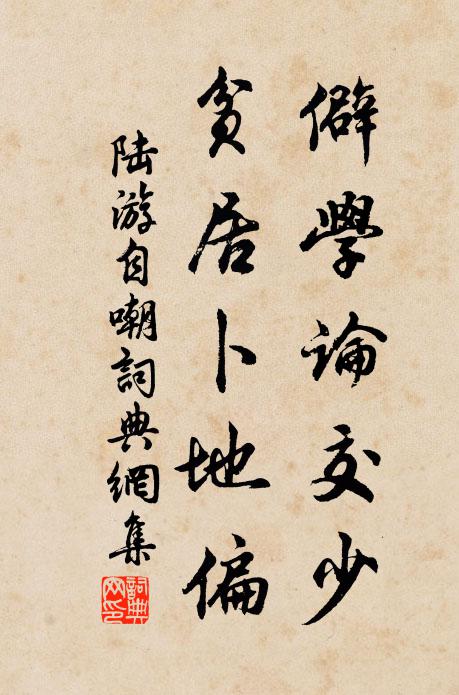 僻學論交少
貧居卜地偏
陸游自嘲詞典網集
詞典網印